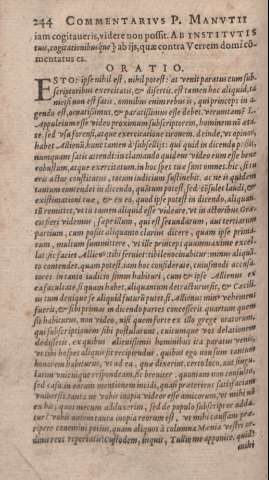 244 COMMENTARIVS P. MANVTII
iam cogitaueris, videre non possit. AB INSTITVTIS
tuis, cogitationibusque] ab ijs, quæ contra Verrem domi cõ-
mentatus es.
ORATIO.
ESTO: ipse nihil est, nihil potest: at venit paratus cum sub-
scriptoribus exercitatis, & disertis. est tamen hoc aliquid, ta
metsi non est satis. omnibus enim rebus is, qui princeps in a-
gendo est, ornatissimus, & paratissimus esse debet. veruntamen L.
Appuleium esse video proximum subscriptorem, hominem nõ æta-
te. sed vsu forensi, atque exercitatione tironem. deinde, vt opinor,
habet Allienũ. hunc tamen à subsellijs: qui quid in dicendo possit,
nunquam satis attendi: in clamando quidem video eum esse bene
robustum, atque exercitatum. in hoc spes tuæ sunt omnes. hic, si tu
eris actor constitutus, totum iudicium sustinebit. ac ne is quidem
tantum contendet in dicendo, quãtum potest sed cõsulet laudi, &
existimationi tuæ, & ex eo, quod ipse potest in dicendo, aliquan-
tũ remittet, vt tu tamen aliquid esse videare. vt in actoribus Græ-
cis fieri videmus, sæpe illum, qui est secundarum, aut tertiarum
partium, cum possit aliquanto clarius dicere, quam ipse prima-
rum, multum summittere, vt ille princeps quam maxime excel-
lat sic faciet Allienus: tibi seruiet: tibi lenocinabitur: minus aliquã-
to contendet, quam potest. iam hoc considerate, cuiusmodi accusa-
tores in tanto iudicio simus habituri, cum & ipse Allienus ex
ea facultate, si quam habet, aliquantum detracturus sit, & Cæcili-
us tum denique se aliquid futurũ putet. si Allienus minus vehemens
fuerit, & sibi primas in dicendo partes concesserit. quartum quem
sit habiturus, non video, nisi quem forte ex illo grege oratorum,
qui subscriptionem sibi postularunt, cuicumque vos delationem
dedissetis. ex quibus alienissimis hominibus ita paratus venis,
vt tibi hospes aliquis sit recipiendus. quibus ego non sum tantum
honorem habiturus, vt ad ea, quæ dixerint, certo loco, aut singu-
latim vnicuique respondeam. sic breuiter, quoniam non consulto,
sed casu in eorum mentionem incidi, quasi præteriens satisfaciam
vniuersis. tanta ne vobis inopia videor esse amicorum, vt mihi nõ
ex his, quos mecum adduxerim, sed de populo subscriptor adda-
tur? vobis autem tanta inopia reorum est, vt mihi caussam præ-
ripere conemini potius, quam aliquos à columna Menia vestri or-
dinis reos reperiatis? Custodem, inquit, Tullio me apponite. quid?
mihi